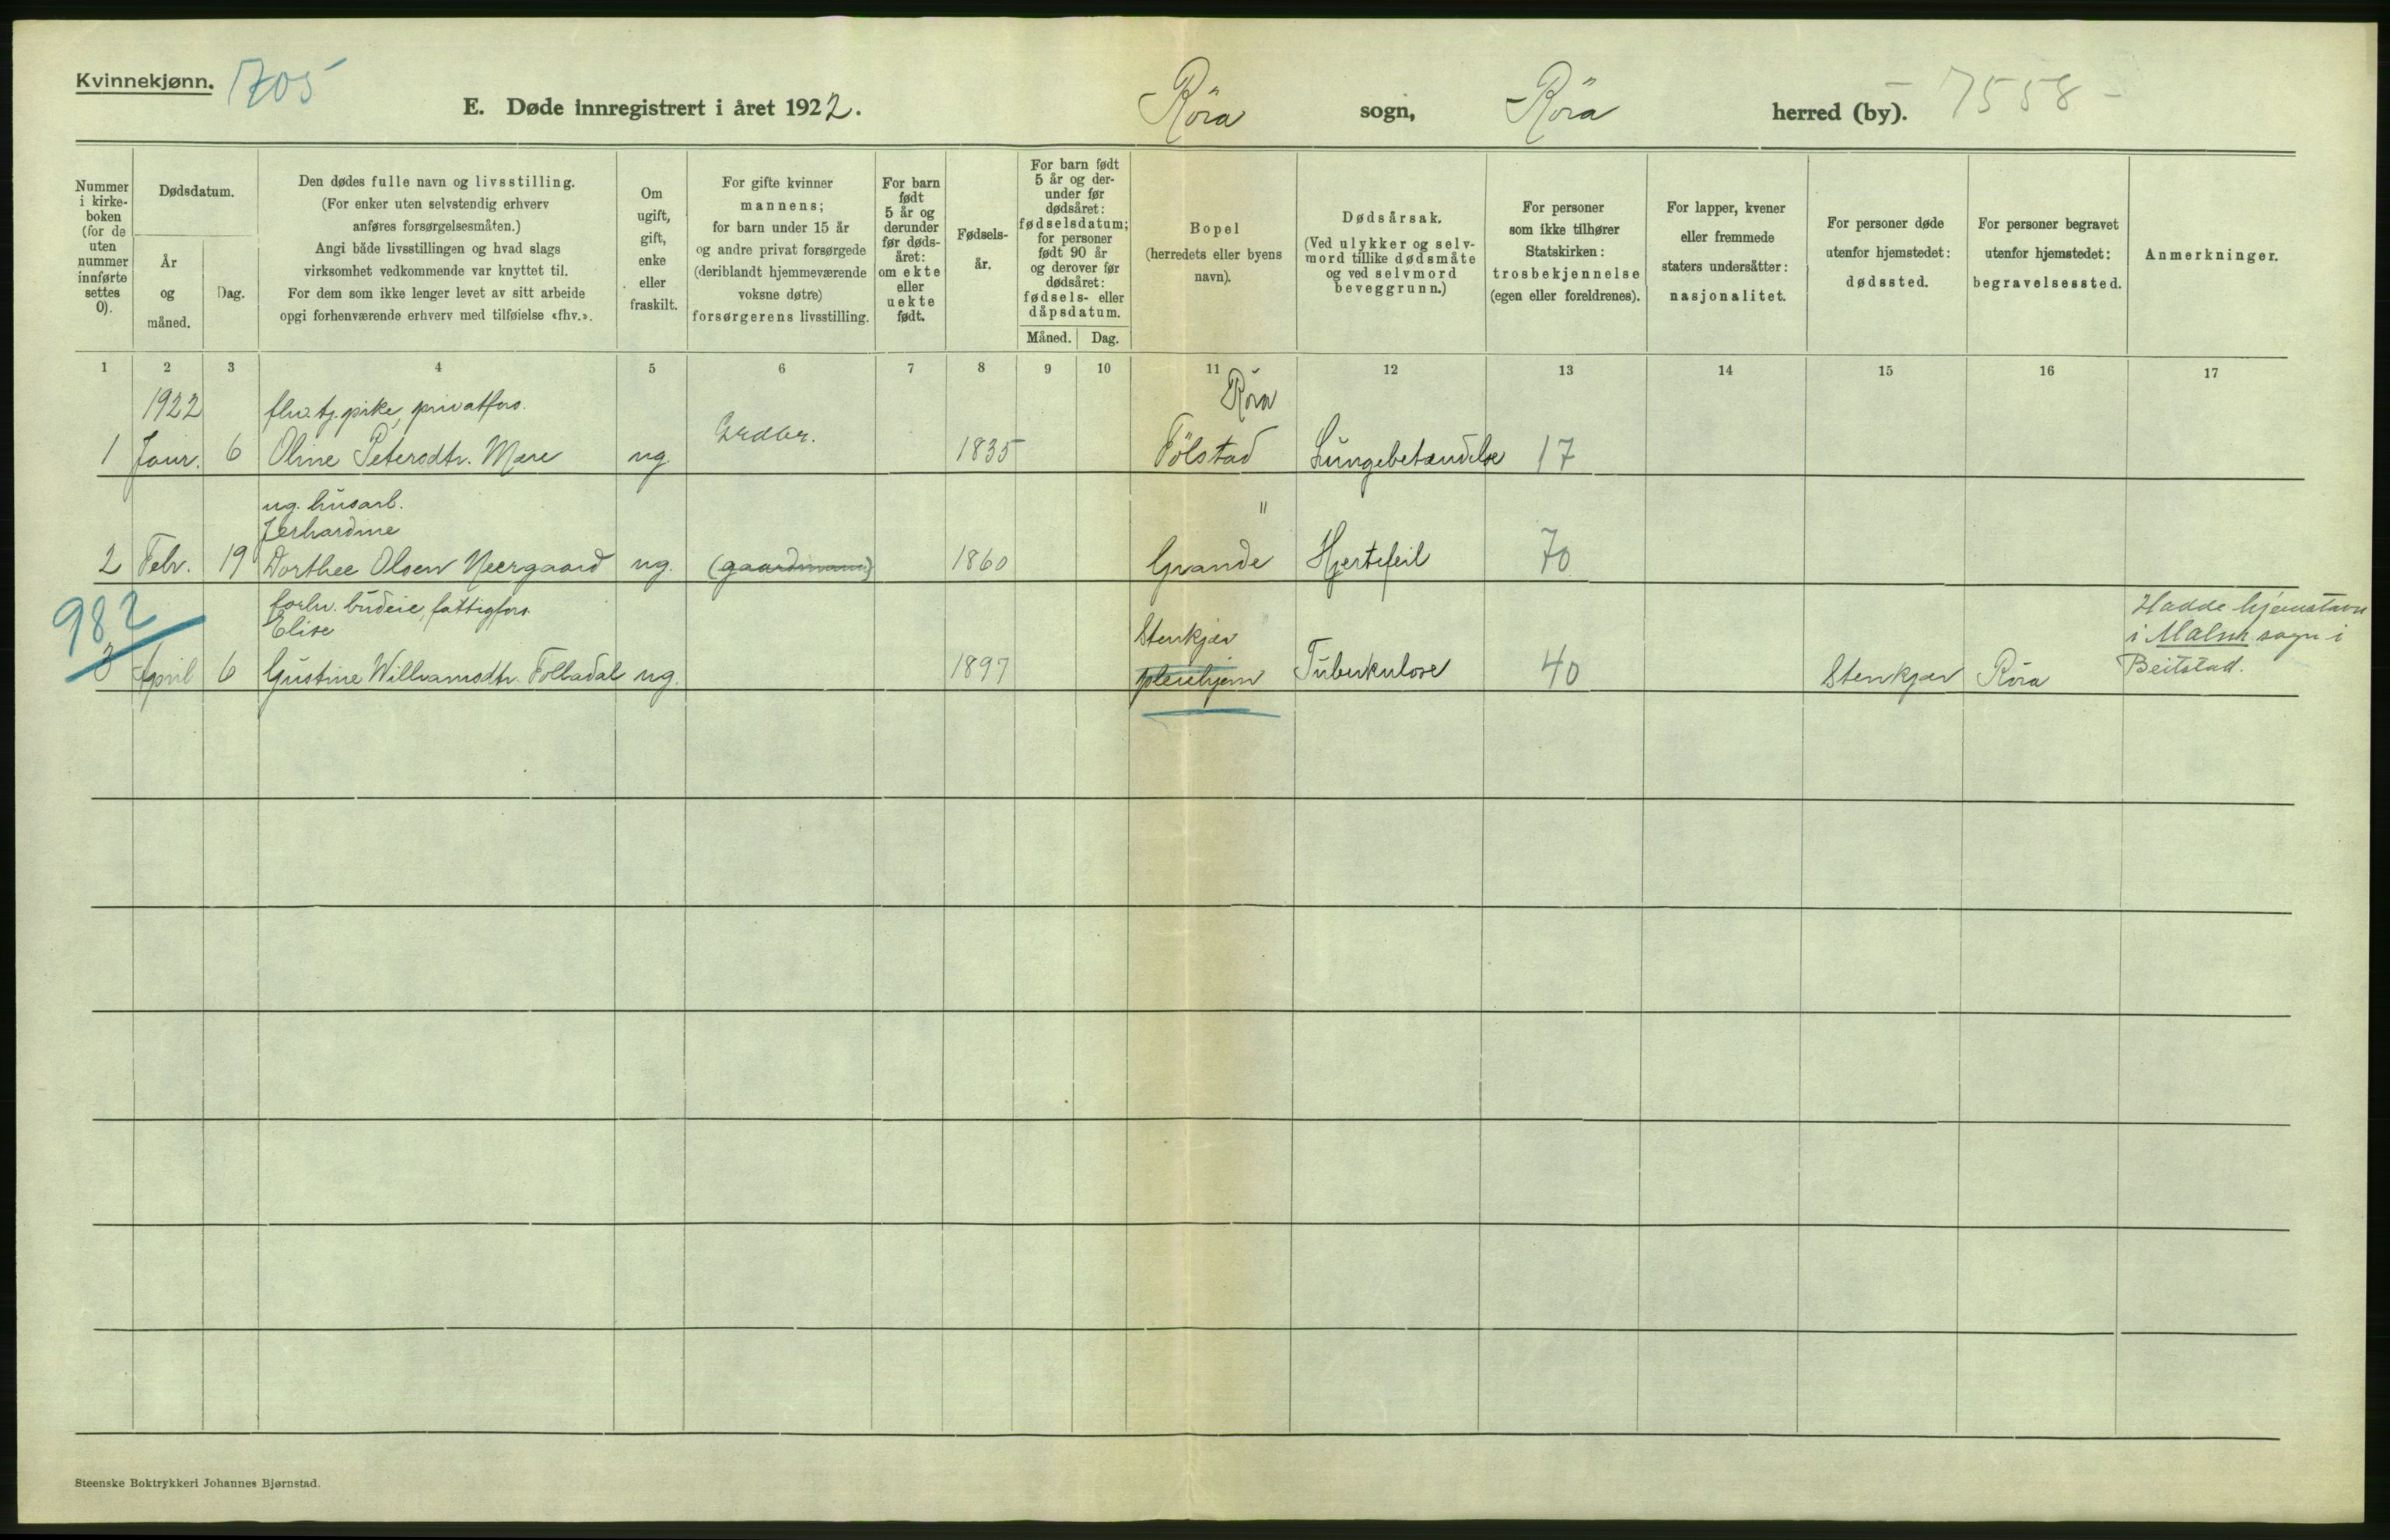 Kvinnekjønn. 1705
E. Døde innregistrert i året 1922. Röra sogn, Röra herred (by). 7558
Nummer i kirke- boken (for de uten nummer innførte settes 0).
Dødsdatum.
År og måned.
Dag.
Den dødes fulle navn og livsstilling.
(For enker uten selvstendig erhverv
anføres forsørgelsesmåten.)
Angi både livsstillingen og hvad slags
virksomhet vedkommende var knyttet til.
For dem som ikke lenger levet av sitt arbeide
opgi forhenværende erhverv med tilføielse «fhv.».
Om ugift, gift, enke eller fraskilt.
For gifte kvinner
mannens;
for barn under 15 år
og andre privat forsørgede
(deriblandt hjemmeværende
voksne døtre)
forsørgerens livsstilling.
For barn født 5 år og derunder før døds- året: om ekte eller uekte født.
Fødsels- år.
For barn født
5 år og der-
under før
dødsåret:
fødselsdatum;
for personer
født 90 år
og derover før
dødsåret:
fødsels- eller
dåpsdatum.
Måned. Dag.
Bopel
(herredets eller byens
navn).
Dødsårsak.
(Ved ulykker og selv-
mord tillike dødsmåte
og ved selvmord
beveggrunn.)
For personer
som ikke tilhører
Statskirken:
trosbekjennelse
(egen eller foreldrenes).
For lapper, kvener
eller fremmede
staters undersåtter:
nasjonalitet.
For personer døde
utenfor hjemstedet:
dødssted.
For personer begravet
utenfor hjemstedet:
begravelsessted.
Anmerkninger.
1 2 3 4 5 6 7 8 9 10 11 12 13 14 15 16 17
1922 fhv. tj. pike, privatfors. Röra
1 Janr. 6 Oline Petersdtr. Mære ug. Grdbr. 1835 Fölstad Lungebetændelse 17
ug. husarb. "
Jerhardine
2 Febr. 19 Dorthee Olsen Neergaard ug. (gaardmann) 1860 Grande Hjertefeil 70
982 forhv. budeie, fattigfors. Hadde hjemstavn
Elise Stenkjær i Malm sogn i
3 April 6 Gustine Williamsdtr. Folladal ug. 1897 pleiehjem Tuberkulose 40 Stenkjær Röra Beitstad.
Steenske Boktrykkeri Johannes Bjørnstad.